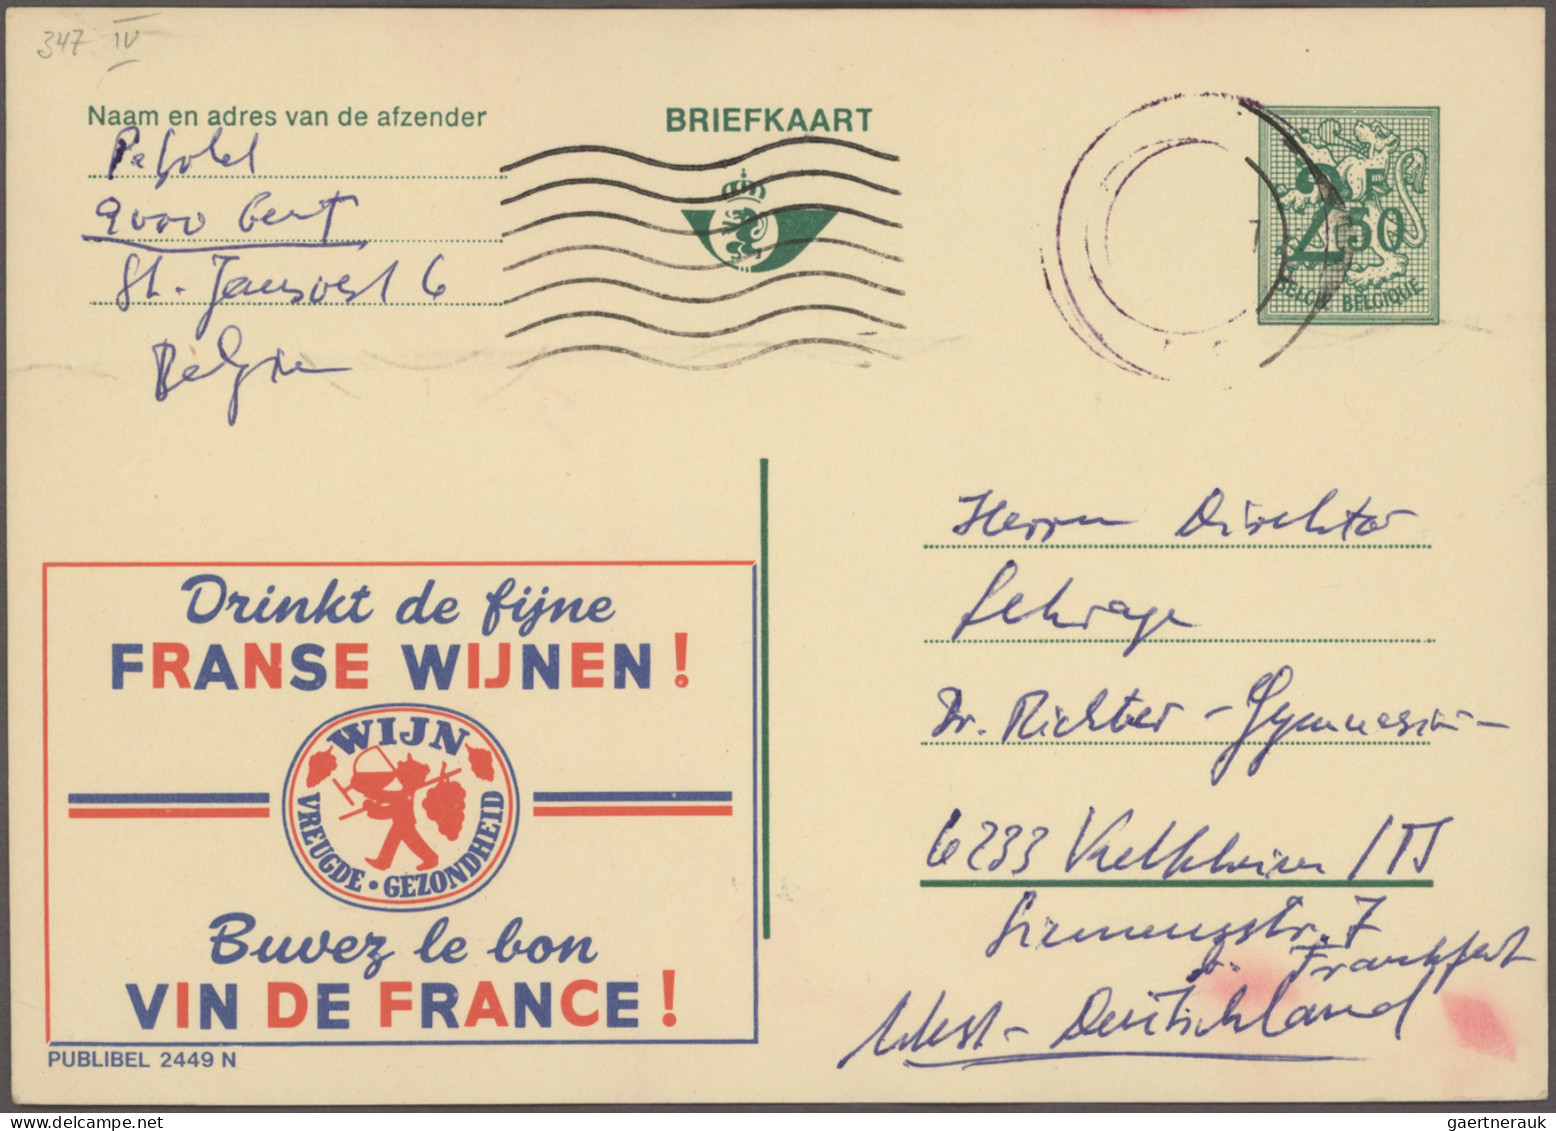 347 IV
Naam en adres van de afzender
BRIEFKAART
Petzold
9000 Gent
St. Jansvest 6
Belgien
2F50
BELGIE BELGIQUE
Herrn Direktor
Schrage
Dr. Richter - Gymnasium
6233 Kelkheim / TS
str. 7
b. Frankfurt
West - Deutschland
Drinkt de fijne
FRANSE WIJNEN !
WIJN
VREUGDE • GEZONDHEID
Buvez le bon
VIN DE FRANCE !
PUBLIBEL 2449 N
gaertnerauk